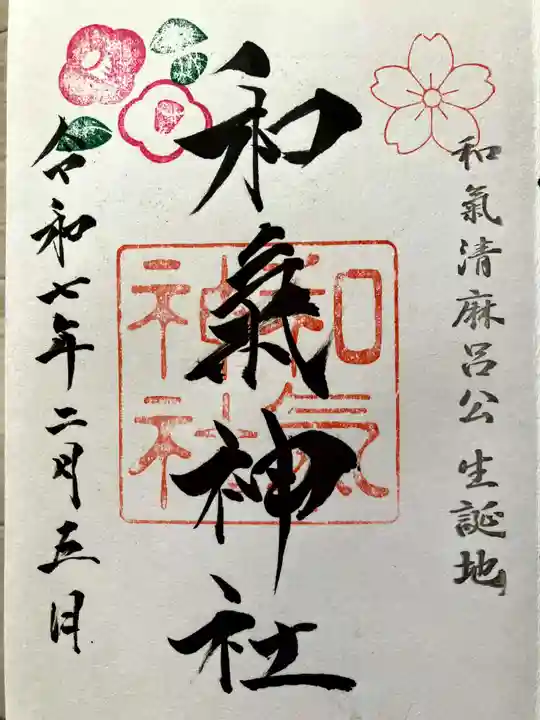 和氣清麻呂公 生誕地
和氣神社
和氣
神社
令和七年二月五日